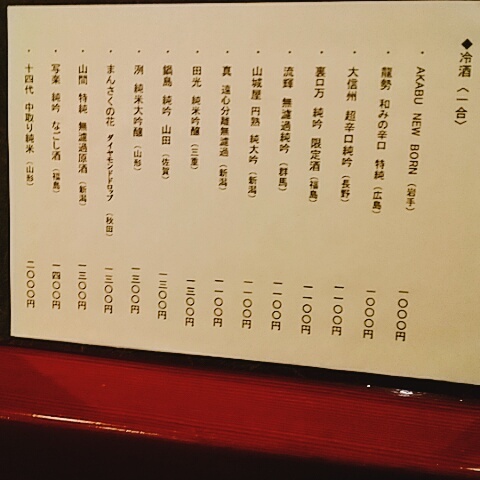 ◆冷酒〈一合〉
・AKABU NEW BORN（岩手） 一〇〇〇円
・龍勢 和みの辛口 特純（広島） 一〇〇〇円
・大信州 超辛口純吟（長野） 一一〇〇円
・裏ロ万 純吟 限定酒（福島） 一一〇〇円
・流輝 無濾過純吟（群馬） 一一〇〇円
・山城屋 円熟 純大吟（新潟） 一一〇〇円
・真 遠心分離無濾過（新潟） 一一〇〇円
・田光 純米吟醸（三重） 一三〇〇円
・鍋島 純吟 山田（佐賀） 一三〇〇円
・洌 純米大吟醸（山形） 一三〇〇円
・まんさくの花 ダイヤモンドドロップ（秋田） 一三〇〇円
・山間 特純 無濾過原酒（新潟） 一三〇〇円
・写楽 純吟 なごし酒（福島） 一四〇〇円
・十四代 中取り純米（山形） 二〇〇〇円